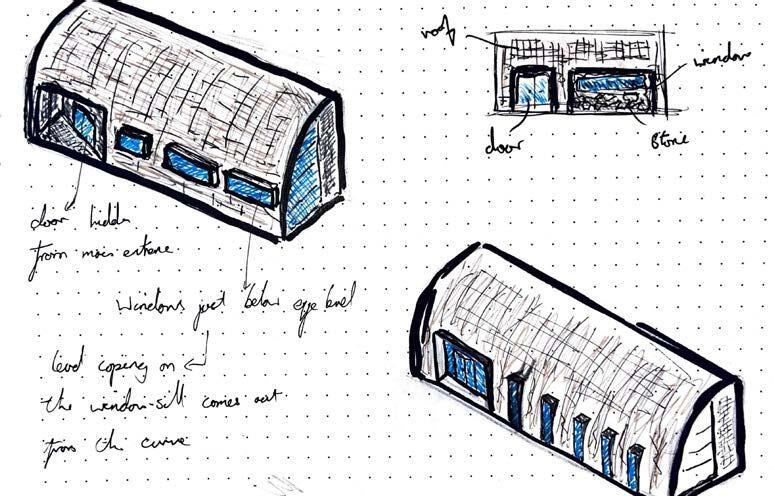 roof
window
door
Stone
door hidden
from main entrance
Windows just below eye level
lead coping on
the window-sill comes out
from the curve